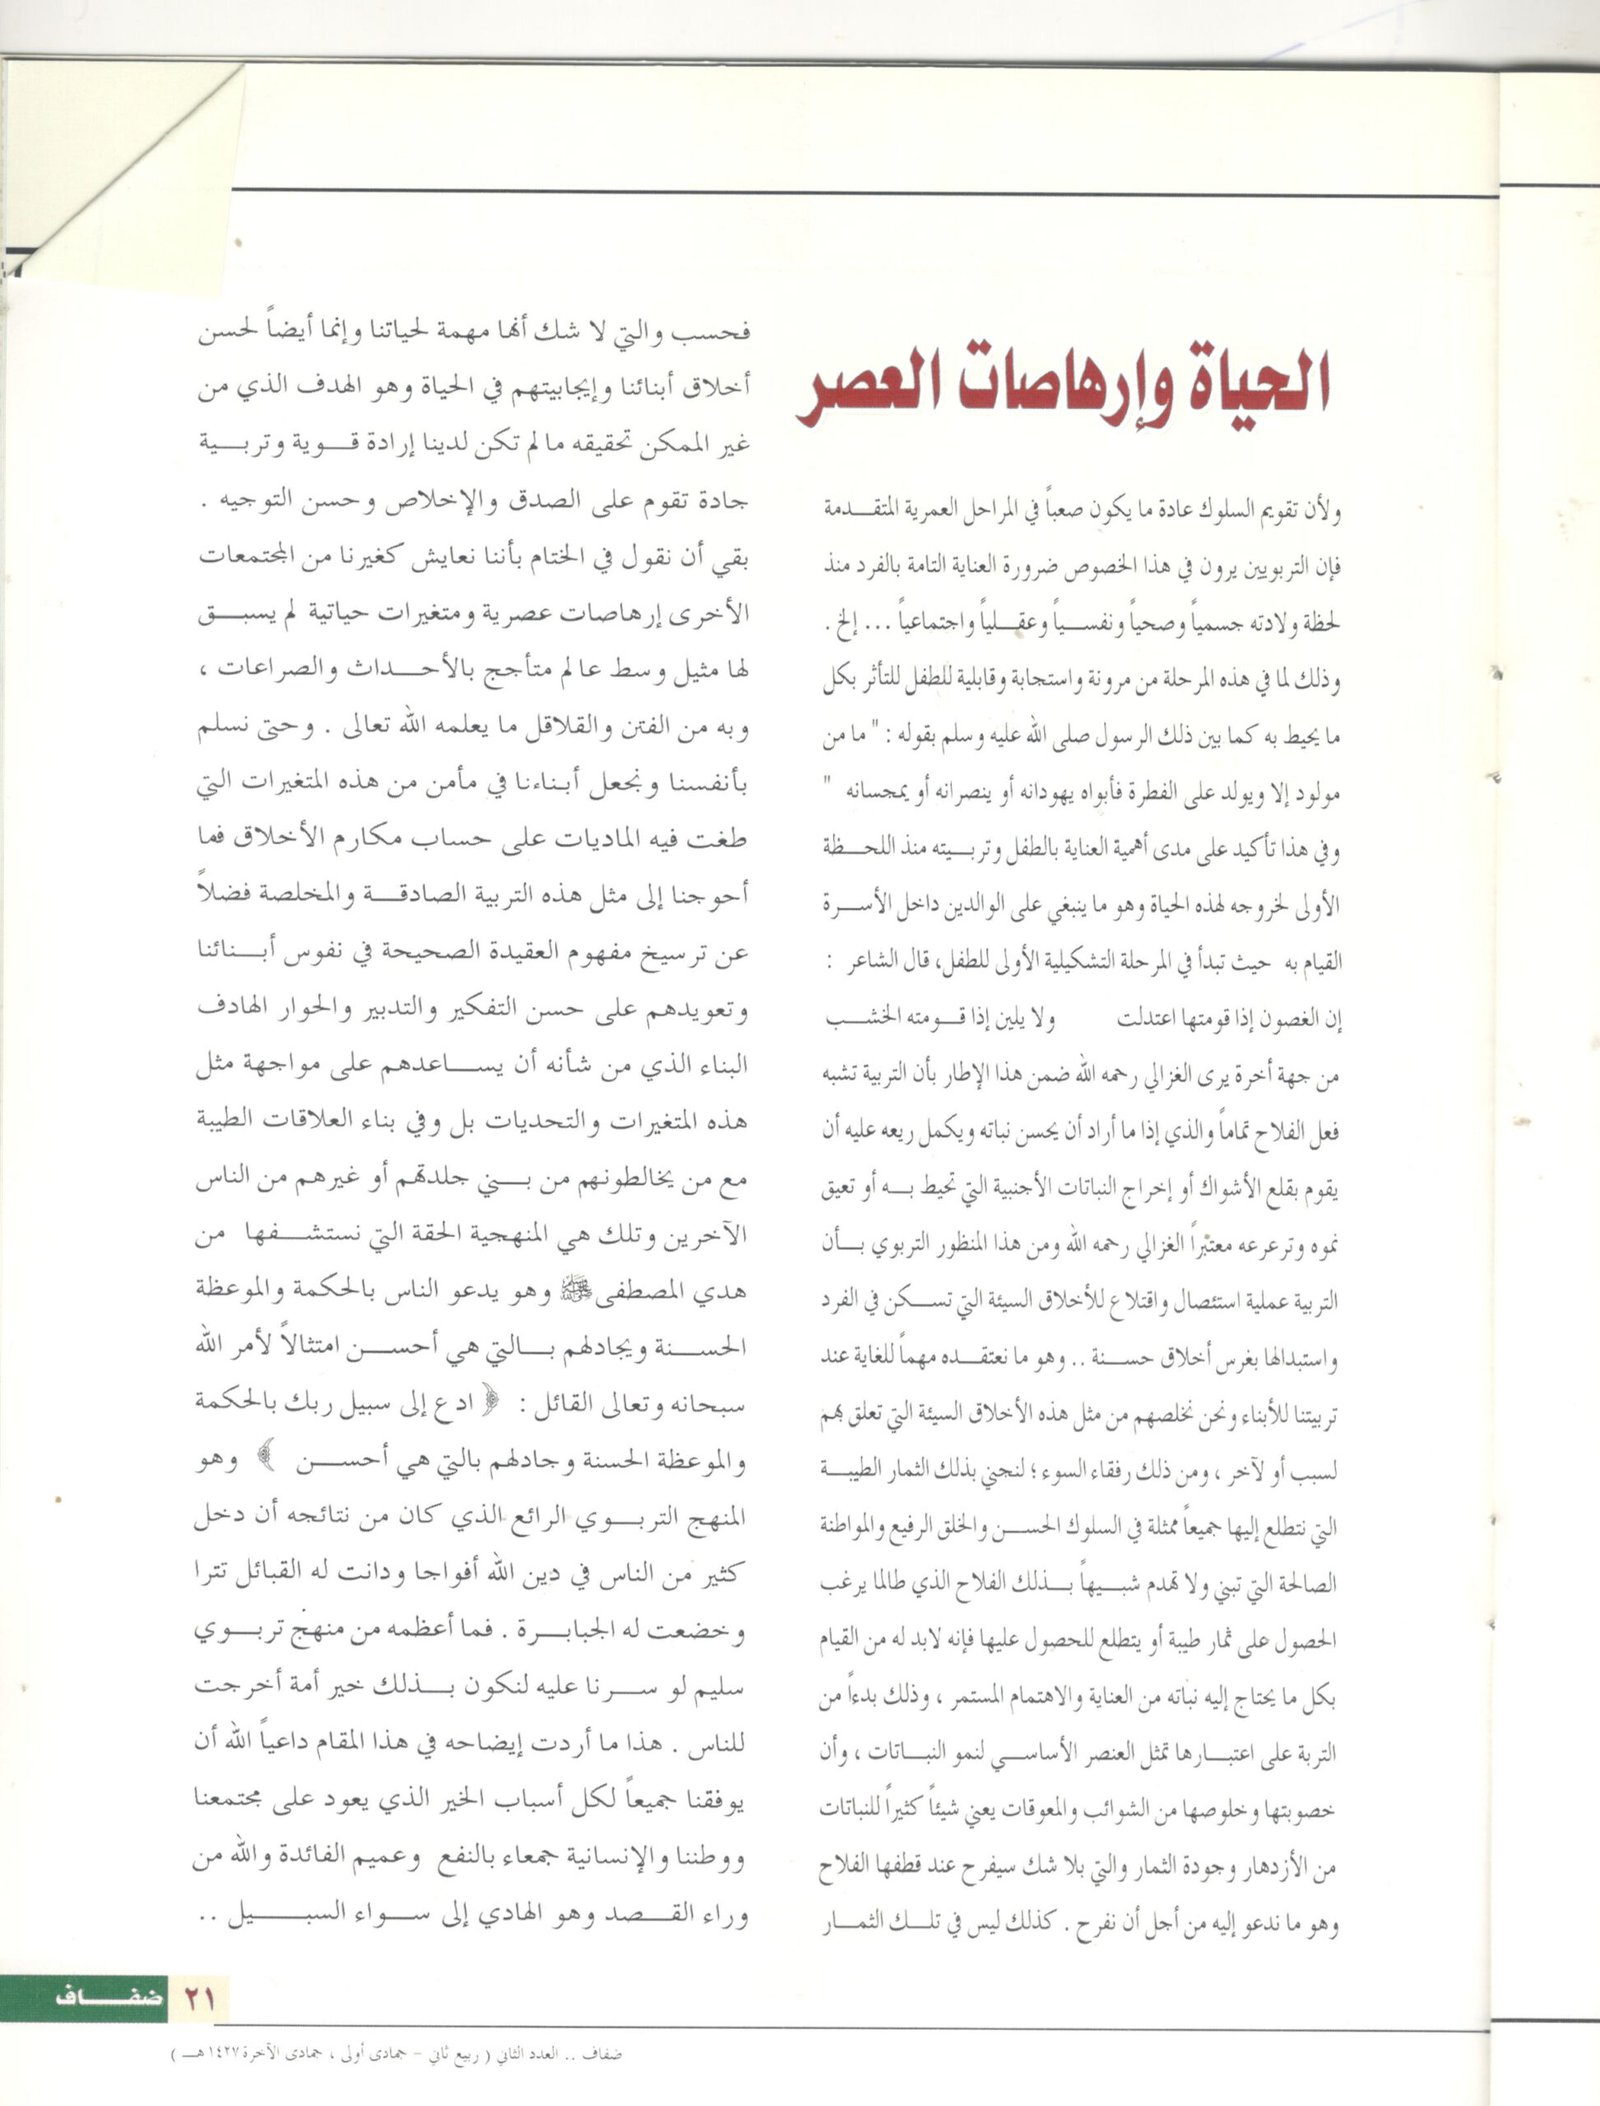 الحياة وإرهاصات العصر
ولأن تقويم السلوك عادة ما يكون صعباً في المراحل العمرية المتقدمة
فإن التربويين يرون في هذا الخصوص ضرورة العناية التامة بالفرد منذ
لحظة ولادته جسمياً وصحياً ونفسياً وعقلياً واجتماعياً ... إلخ .
وذلك لما في هذه المرحلة من مرونة واستجابة وقابلية للطفل للتأثر بكل
ما يحيط به كما بين ذلك الرسول صلى الله عليه وسلم بقوله : " ما من
مولود إلا ويولد على الفطرة فأبواه يهودانه أو ينصرانه أو يمجسانه "
وفي هذا تأكيد على مدى أهمية العناية بالطفل وتربيته منذ اللحظة
الأولى لخروجه لهذه الحياة وهو ما ينبغي على الوالدين داخل الأسرة
القيام به حيث تبدأ في المرحلة التشكيلية الأولى للطفل، قال الشاعر :
إن الغصون إذا قومتها اعتدلت ولا يلين إذا قومته الخشب
من جهة أخرة يرى الغزالي رحمه الله ضمن هذا الإطار بأن التربية تشبه
فعل الفلاح تماماً والذي إذا ما أراد أن يحسن نباته ويكمل ريعه عليه أن
يقوم بقلع الأشواك أو إخراج النباتات الأجنبية التي تحيط به أو تعيق
نموه وترعرعه معتبراً الغزالي رحمه الله ومن هذا المنظور التربوي بأن
التربية عملية استئصال واقتلاع للأخلاق السيئة التي تسكن في الفرد
واستبدالها بغرس أخلاق حسنة .. وهو ما نعتقده مهماً للغاية عند
تربيتنا للأبناء ونحن نخلصهم من مثل هذه الأخلاق السيئة التي تعلق بهم
لسبب أو لآخر ، ومن ذلك رفقاء السوء ؛ لنجني بذلك الثمار الطيبة
التي نتطلع إليها جميعاً ممثلة في السلوك الحسن والخلق الرفيع والمواطنة
الصالحة التي تبني ولا تهدم شبيهاً بذلك الفلاح الذي طالما يرغب
الحصول على ثمار طيبة أو يتطلع للحصول عليها فإنه لابد له من القيام
بكل ما يحتاج إليه نباته من العناية والاهتمام المستمر ، وذلك بدءاً من
التربة على اعتبارها تمثل العنصر الأساسي لنمو النباتات ، وأن
خصوبتها وخلوصها من الشوائب والمعوقات يعني شيئاً كثيراً للنباتات
من الأزدهار وجودة الثمار والتي بلا شك سيفرح عند قطفها الفلاح
وهو ما ندعو إليه من أجل أن نفرح . كذلك ليس في تلك الثمار
فحسب والتي لا شك أنها مهمة لحياتنا وإنما أيضاً لحسن
أخلاق أبنائنا وإيجابيتهم في الحياة وهو الهدف الذي من
غير الممكن تحقيقه ما لم تكن لدينا إرادة قوية وتربية
جادة تقوم على الصدق والإخلاص وحسن التوجيه .
بقي أن نقول في الختام بأننا نعايش كغيرنا من المجتمعات
الأخرى إرهاصات عصرية ومتغيرات حياتية لم يسبق
لها مثيل وسط عالم متأجج بالأحداث والصراعات ،
وبه من الفتن والقلاقل ما يعلمه الله تعالى . وحتى نسلم
بأنفسنا ونجعل أبناءنا في مأمن من هذه المتغيرات التي
طغت فيه الماديات على حساب مكارم الأخلاق فما
أحوجنا إلى مثل هذه التربية الصادقة والمخلصة فضلاً
عن ترسيخ مفهوم العقيدة الصحيحة في نفوس أبنائنا
وتعويدهم على حسن التفكير والتدبير والحوار الهادف
البناء الذي من شأنه أن يساعدهم على مواجهة مثل
هذه المتغيرات والتحديات بل وفي بناء العلاقات الطيبة
مع من يخالطونهم من بني جلدتهم أو غيرهم من الناس
الآخرين وتلك هي المنهجية الحقة التي نستشفها من
هدي المصطفى ﷺ وهو يدعو الناس بالحكمة والموعظة
الحسنة ويجادلهم بالتي هي أحسن امتثالاً لأمر الله
سبحانه وتعالى القائل : ﴿ ادع إلى سبيل ربك بالحكمة
والموعظة الحسنة وجادلهم بالتي هي أحسن ﴾ وهو
المنهج التربوي الرائع الذي كان من نتائجه أن دخل
كثير من الناس في دين الله أفواجا ودانت له القبائل تترا
وخضعت له الجبابرة . فما أعظمه من منهج تربوي
سليم لو سرنا عليه لنكون بذلك خير أمة أخرجت
للناس . هذا ما أردت إيضاحه في هذا المقام داعياً الله أن
يوفقنا جميعاً لكل أسباب الخير الذي يعود على مجتمعنا
ووطننا والإنسانية جمعاء بالنفع وعميم الفائدة والله من
وراء القصد وهو الهادي إلى سواء السبيل ..
٢١ ضفاف
ضفاف .. العدد الثاني ( ربيع ثاني - جمادى أولى ، جمادى الآخرة ١٤٢٧هـ )